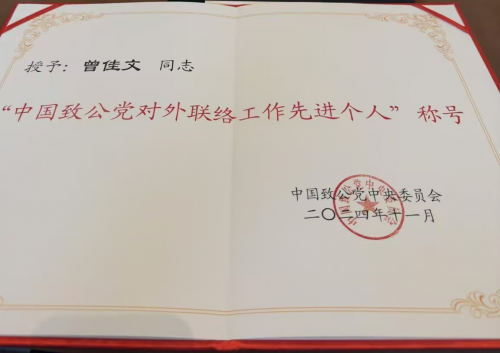 授予：曾佳文 同志
“中国致公党对外联络工作先进个人”称号
中国致公党中央委员会
二〇二四年十一月